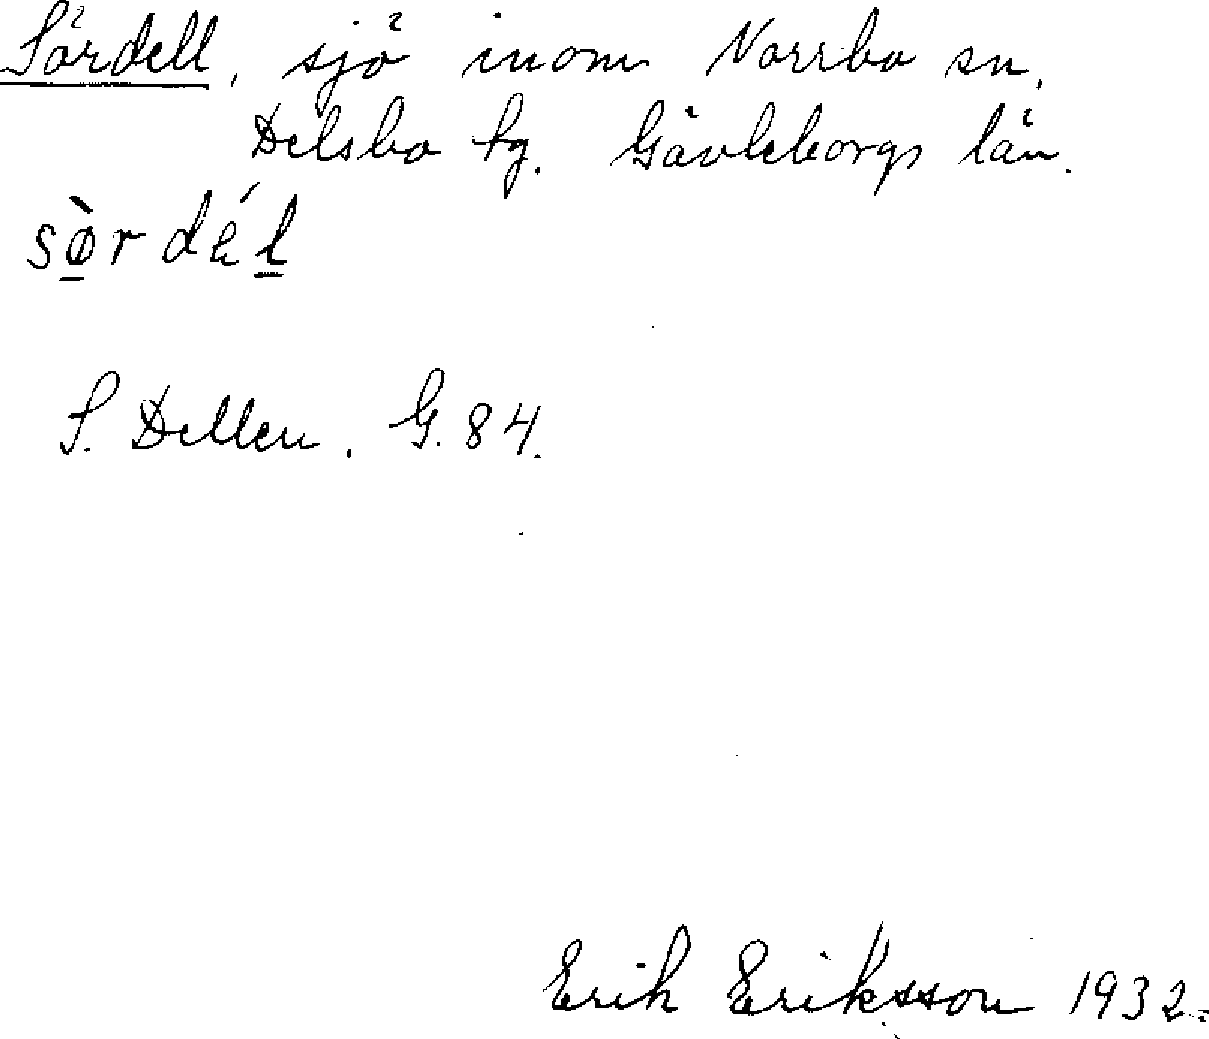 Sördell, sjö inom Norrbo sn,
Delsbo tg. Gävleborgs län.
sø̱̀rdéḻ
S. Dellen. G. 84.
Erik Eriksson 1932.